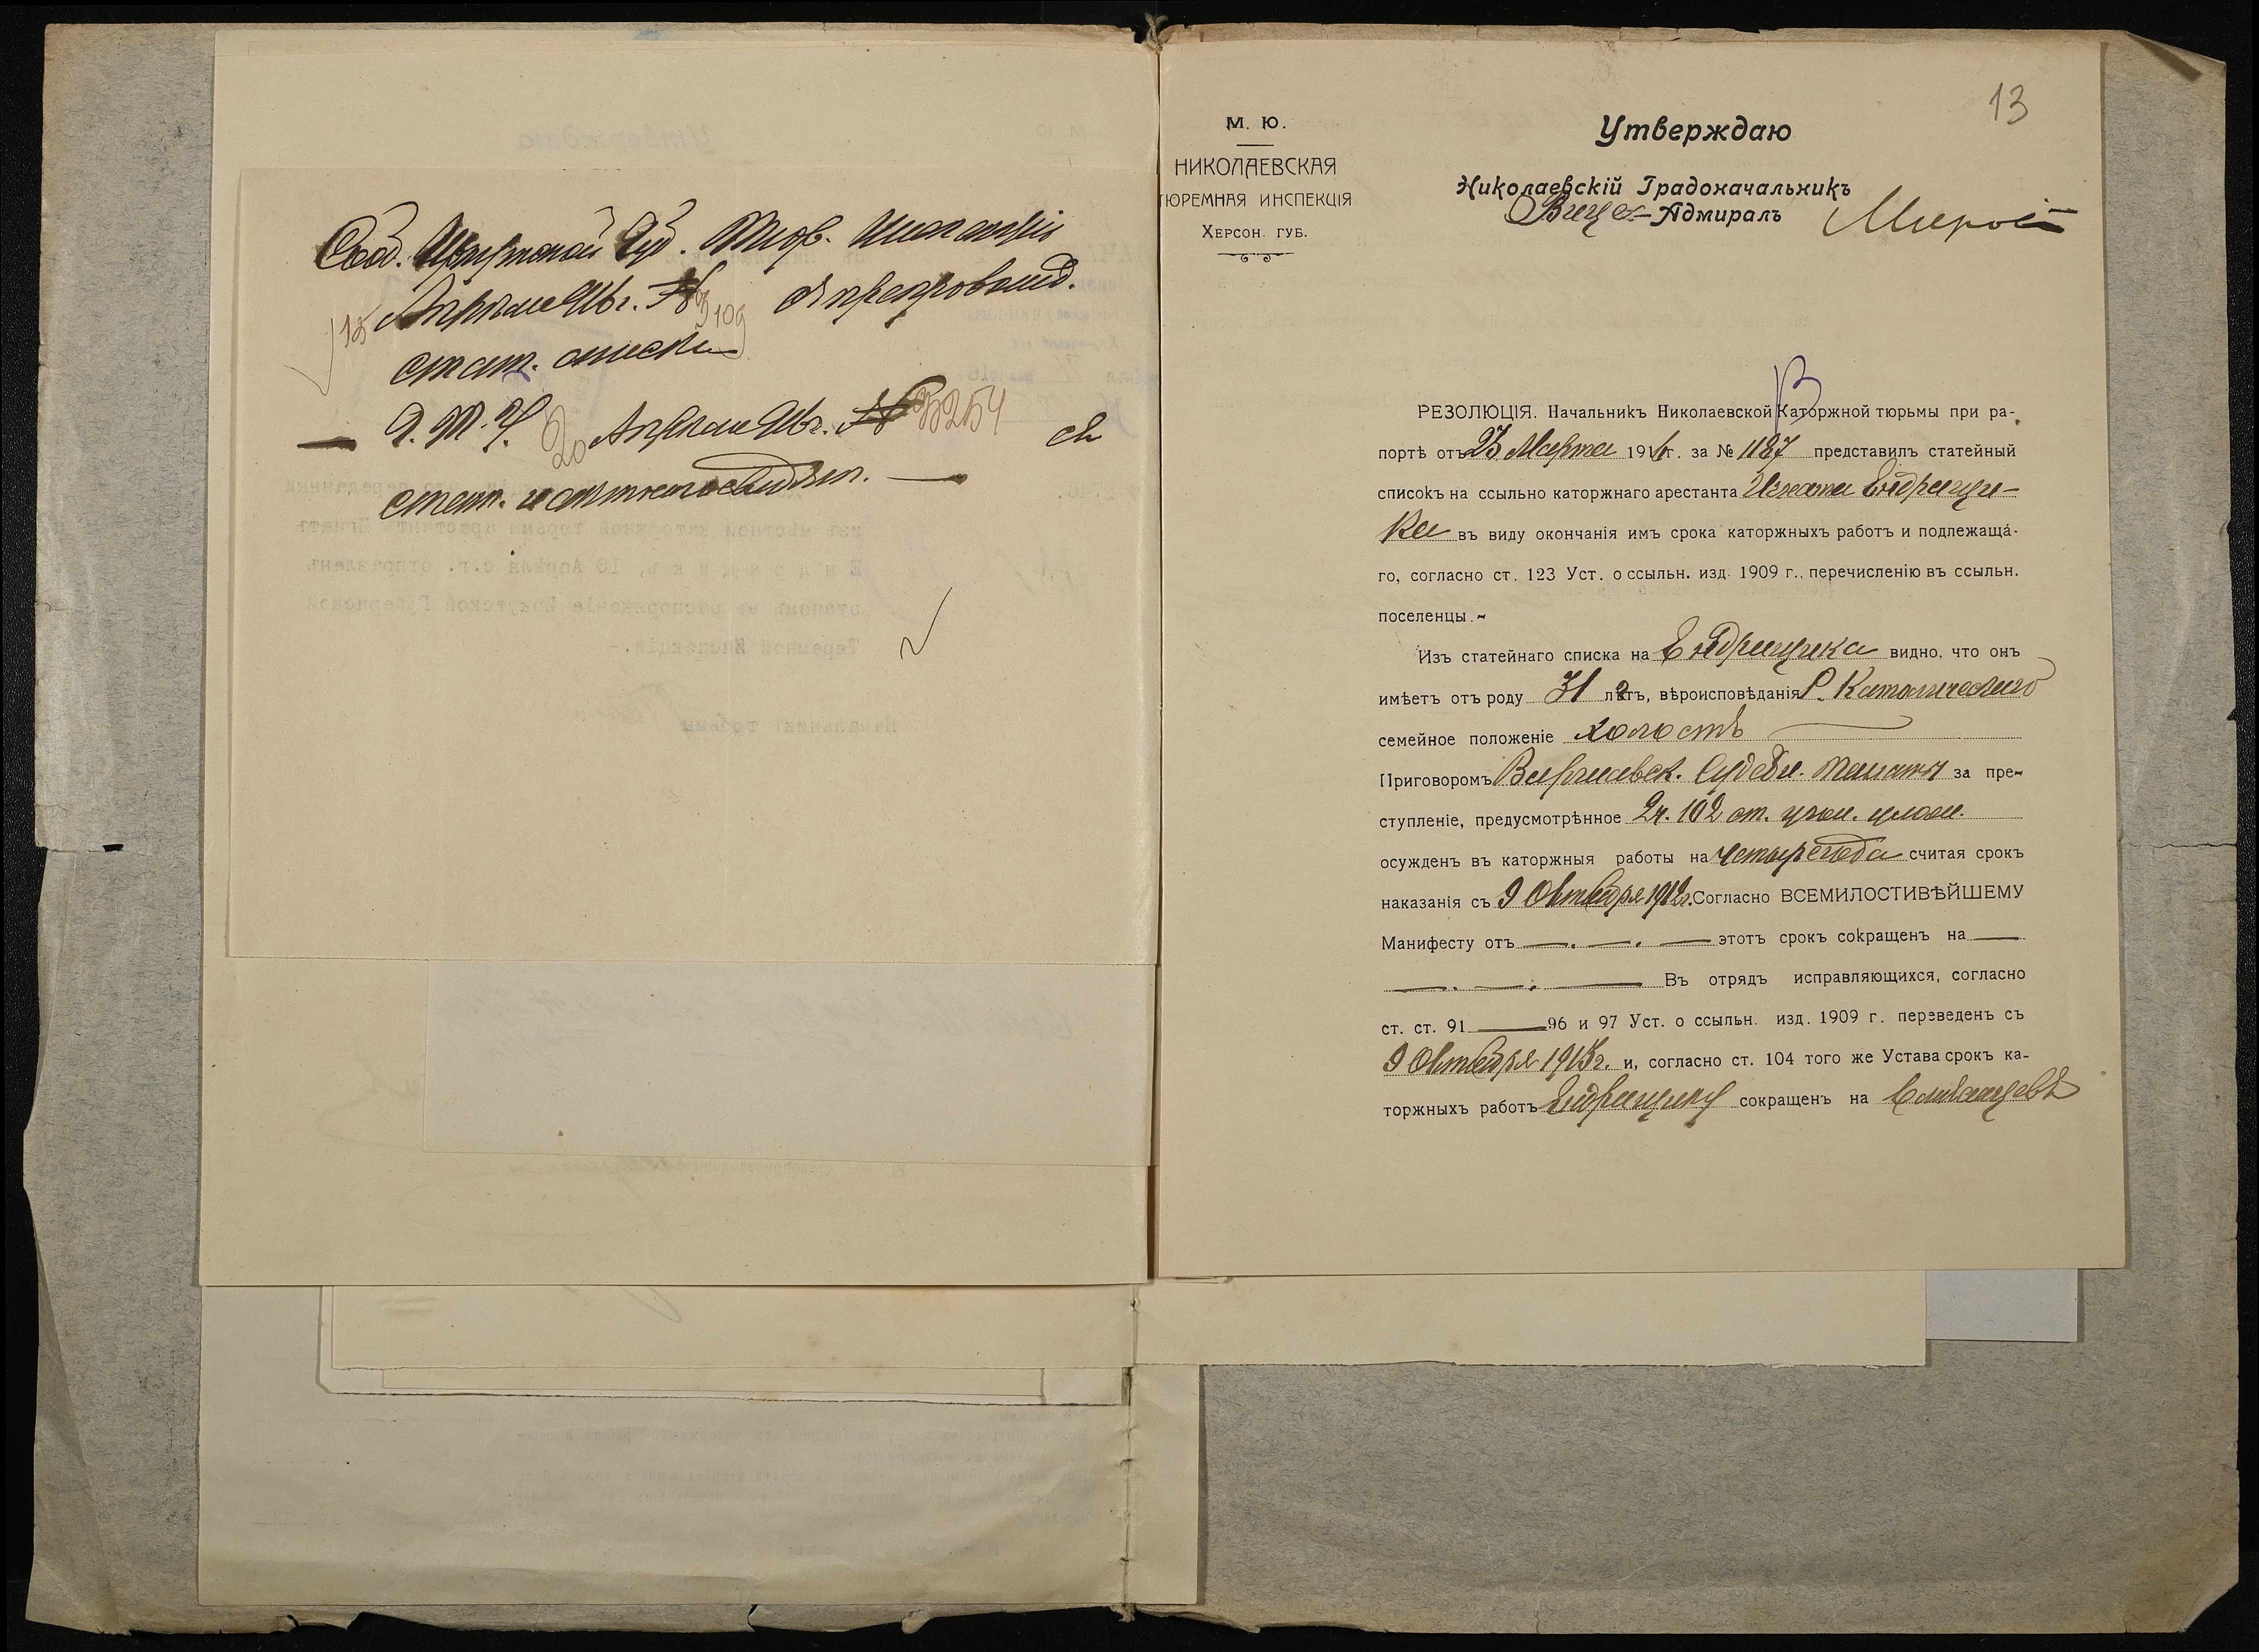 Сооб. Иркутской Губ. Тюр. Инспекціи
15 Апрѣля 916 г. № 3109 препровожд.
стат. списки
Г. Т. У. 20 Апрѣля 916 г. № 3254 съ
стат.
13
М. Ю.
НИКОЛАЕВСКАЯ
ТЮРЕМНАЯ ИНСПЕКЦІЯ
ХЕРСОН. ГУБ.
Утверждаю
Николаевскій Градоначальникъ
Вице-Адмиралъ
РЕЗОЛЮЦІЯ. Начальникъ Николаевской Каторжной тюрьмы при ра-
портѣ отъ 23 Марта 1916 г. за № 1187 представилъ статейный
списокъ на ссыльно каторжнаго арестанта Игната Ендращи-
ка въ виду окончанія имъ срока каторжныхъ работъ и подлежаща-
го, согласно ст. 123 Уст. о ссыльн. изд. 1909 г., перечисленію въ ссыльн.
поселенцы.~
Изъ статейнаго списка на Ендращика видно, что онъ
имѣетъ отъ роду 31 лѣтъ, вѣроисповѣданія Р. Католическаго
семейное положеніе холостъ
Приговоромъ Варшавск. Судебн. Палаты за пре-
ступленіе, предусмотрѣнное 2 ч. 102 ст. угол. улож.
осужденъ въ каторжныя работы на четыре года считая срокъ
наказанія съ 9 Октября 1912 г. Согласно ВСЕМИЛОСТИВѢЙШЕМУ
Манифесту отъ —. —. — этотъ срокъ сокращенъ на —
—. —. — Въ отрядъ исправляющихся, согласно
ст. ст. 91 — 96 и 97 Уст. о ссыльн. изд. 1909 г. переведенъ съ
9 Октября 1913 г. и, согласно ст. 104 того же Устава срокъ ка-
торжныхъ работъ Ендращику сокращенъ на 6 мѣсяцевъ